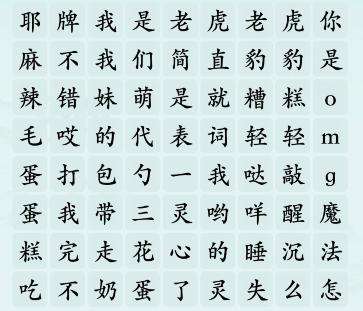 耶牌我是老虎老虎你
麻不我们简直豹豹是
辣错妹萌是就糟糕o
毛哎的代表词轻轻m
蛋打包勺一我哒敲g
蛋我带三灵哟咩醒魔
糕完走花心的睡沉法
吃不奶蛋了灵失么怎